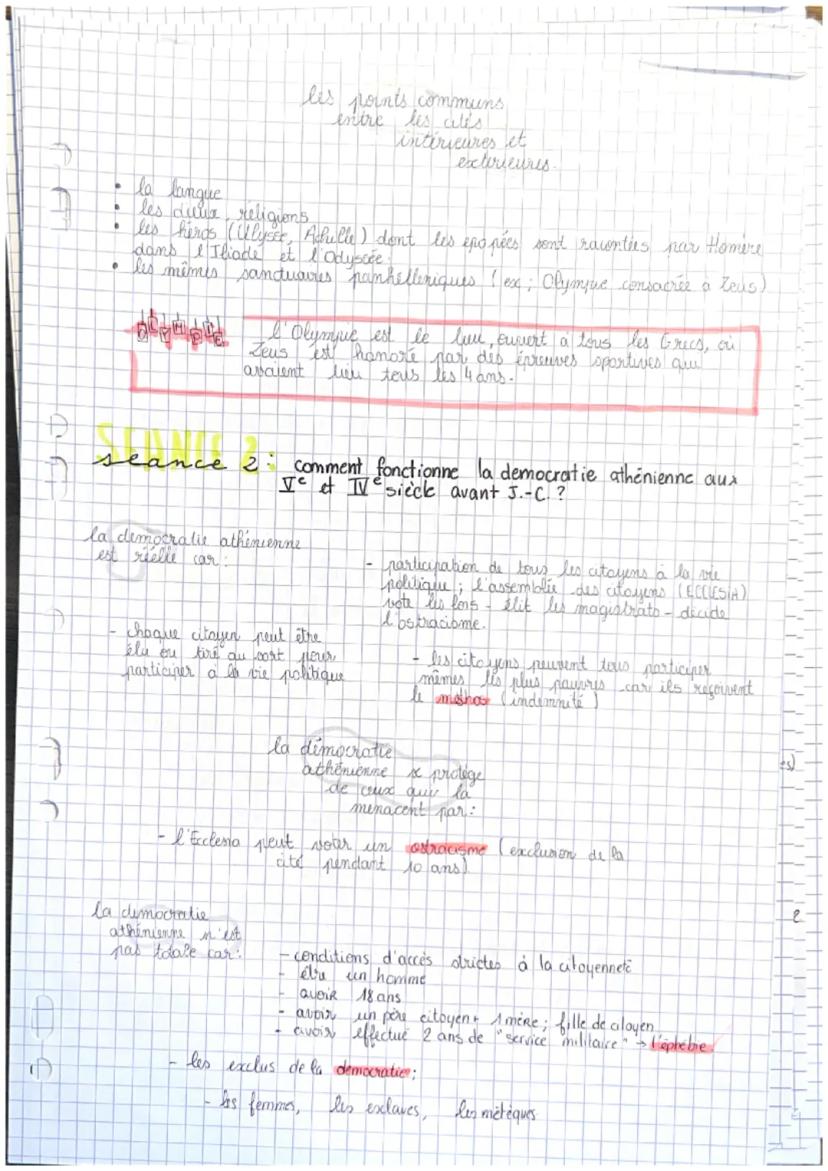 les points communs
entre les cités
intérieures et
exterieures.
• la langue
• les dieux, religions
• les héros (Ulysse, Achille) dont les épopées sont racontées par Homère
dans l'Iliade et l'Odyssée.
• les mêmes sanctuaires panhelleniques (ex; Olympie consacrée à Zeus)
OLYMPIE
l'Olympie est le lieu, ouvert à tous les Grecs, où
Zeus est honoré par des épreuves sportives qui
avaient lieu tous les 4 ans.
SEANCE 2
seance 2: comment fonctionne la democratie athénienne aux
Ve et IVe siècle avant J.-C. ?
la democratie athénienne
est réelle car:
- participation de tous les citoyens à la vie
politique; l'assemblée des citoyens (ECCLESIA)
vote les lois - élit les magistrats - décide
l'ostracisme.
- chaque citoyen peut être
élu ou tiré au sort pour
participer à la vie politique
- les citoyens peuvent tous participer
mêmes les plus pauvres car ils reçoivent
le misthos (indemnité)
la démocratie
athénienne se protège
de ceux qui la
menacent par:
- l'Ecclesia peut voter un ostracisme (exclusion de la
cité pendant 10 ans)
la democratie
athénienne n'est
pas totale car:
- conditions d'accès strictes à la citoyenneté
- être un homme
- avoir 18 ans
- avoir un père citoyen + 1 mère; fille de citoyen
- avoir effectué 2 ans de "service militaire" → l'éphébie
- les exclus de la democratie:
- les femmes, les esclaves, les métèques